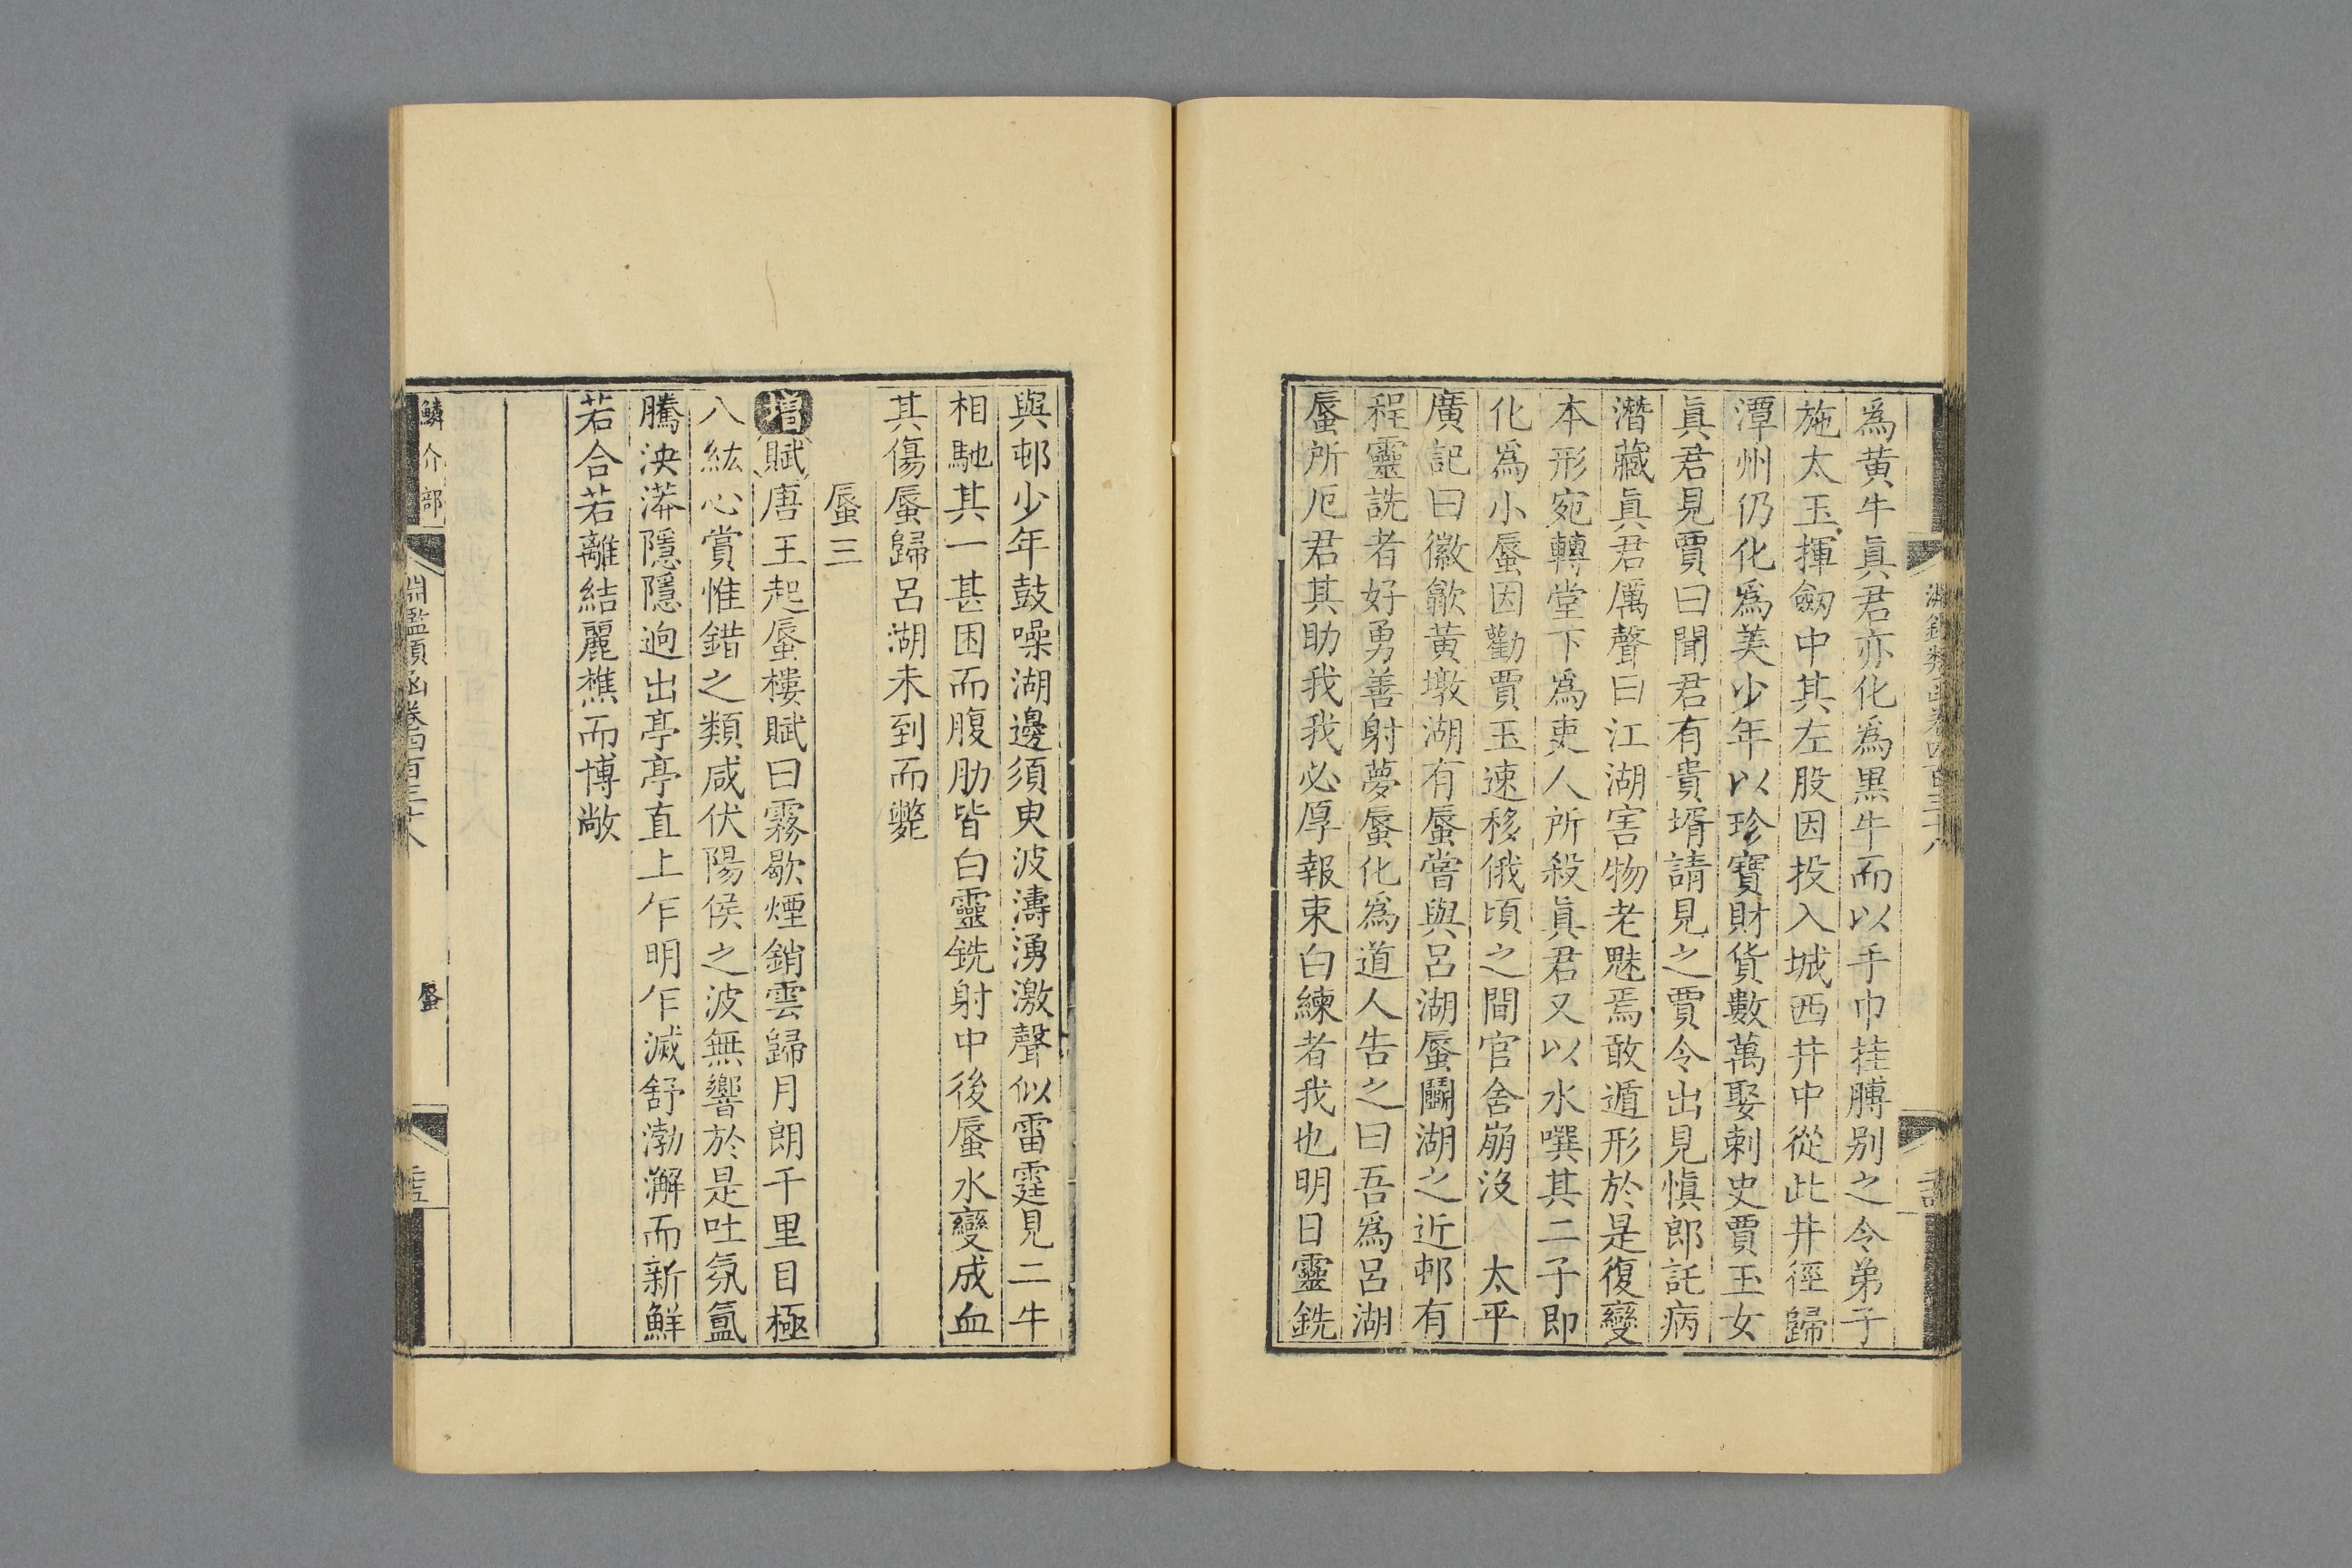 爲黃牛眞君亦化爲黒牛而以手巾挂膊别之令弟子
施太玉揮劒中其左股因投入城西井中從此井徑歸
潭州仍化爲美少年以珍寶財貨數萬娶刺史賈玉女
眞君見賈曰聞君有貴壻請見之賈令出見愼郎託病
潛藏眞君厲聲曰江湖害物老魅焉敢遁形於是復變
本形宛轉堂下爲吏人所殺眞君又以水噀其二子即
化爲小蜃因勸賈玉速移俄頃之間官舍崩沒　太平
廣記曰徽歙黃墩湖有蜃嘗與呂湖蜃鬬湖之近邨有
程靈詵者好勇善射夢蜃化爲道人告之曰吾爲呂湖
蜃所厄君其助我我必厚報束白練者我也明日靈銑
與邨少年鼓噪湖邊須臾波濤湧激聲似雷霆見二牛
相馳其一甚困而腹肋皆白靈銑射中後蜃水變成血
其傷蜃歸呂湖未到而斃
蜃三
增賦唐王起蜃樓賦曰霧歇煙銷雲歸月朗千里目極
八紘心賞惟錯之類咸伏陽侯之波無響於是吐氛氳
騰泱漭隱隱逈出亭亭直上乍明乍滅舒渤澥而新鮮
若合若離結麗樵而博敞
鱗介部
淵鑑類函卷四百三十八
蜃